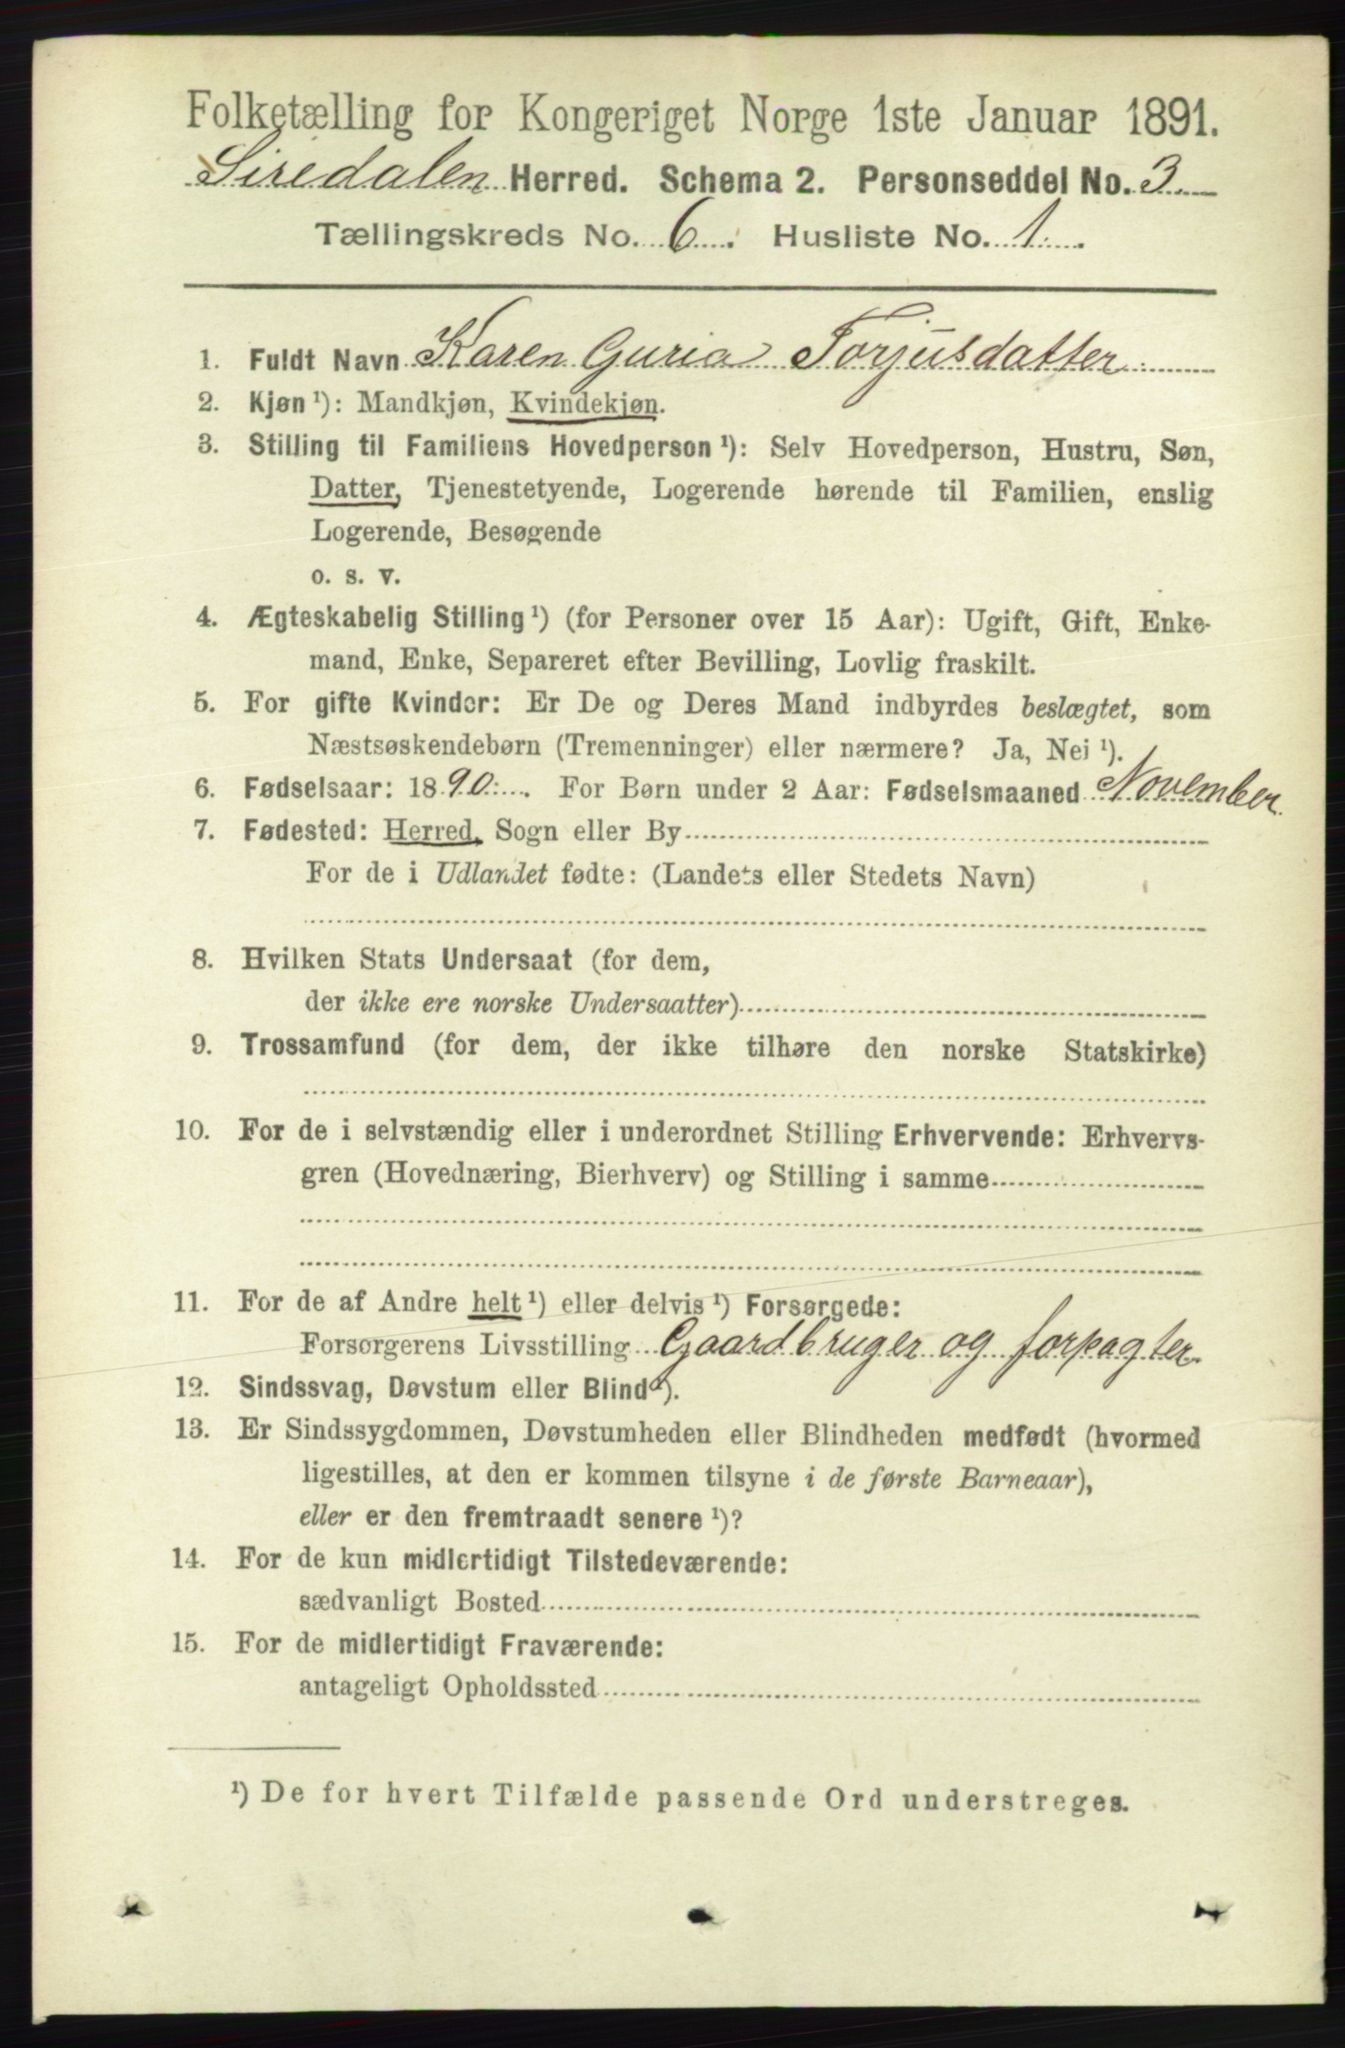 Folketælling for Kongeriget Norge 1ste Januar 1891.
Siredalen Herred. Schema 2. Personseddel No. 3.
Tællingskreds No. 6. Husliste No. 1.
1. Fuldt Navn Karen Guria Torjusdatter
2. Kjøn ¹): Mandkjøn, Kvindekjøn.
3. Stilling til Familiens Hovedperson ¹): Selv Hovedperson, Hustru, Søn,
Datter, Tjenestetyende, Logerende hørende til Familien, enslig
Logerende, Besøgende
o. s. v.
4. Ægteskabelig Stilling ¹) (for Personer over 15 Aar): Ugift, Gift, Enke-
mand, Enke, Separeret efter Bevilling, Lovlig fraskilt.
5. For gifte Kvinder: Er De og Deres Mand indbyrdes beslægtet, som
Næstsøskendebørn (Tremenninger) eller nærmere? Ja, Nei ¹).
6. Fødselsaar: 1890. For Børn under 2 Aar: Fødselsmaaned November
7. Fødested: Herred, Sogn eller By
For de i Udlandet fødte: (Landets eller Stedets Navn)
8. Hvilken Stats Undersaat (for dem,
der ikke ere norske Undersaatter)
9. Trossamfund (for dem, der ikke tilhøre den norske Statskirke)
10. For de i selvstændig eller i underordnet Stilling Erhvervende: Erhvervs-
gren (Hovednæring, Bierhverv) og Stilling i samme
11. For de af Andre helt ¹) eller delvis ¹) Forsørgede:
Forsørgerens Livsstilling Gaardbruger og forpagter
12. Sindssvag, Døvstum eller Blind ¹).
13. Er Sindssygdommen, Døvstumheden eller Blindheden medfødt (hvormed
ligestilles, at den er kommen tilsyne i de første Barneaar),
eller er den fremtraadt senere ¹)?
14. For de kun midlertidigt Tilstedeværende:
sædvanligt Bosted
15. For de midlertidigt Fraværende:
antageligt Opholdssted
¹) De for hvert Tilfælde passende Ord understreges.